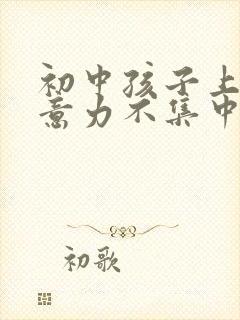 初中孩子上
意力不集中
初歌